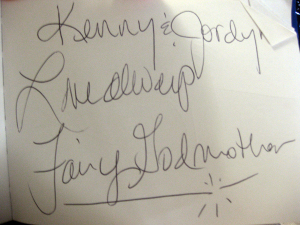 Kenny & Jordyn
Love always
Fairy Godmother